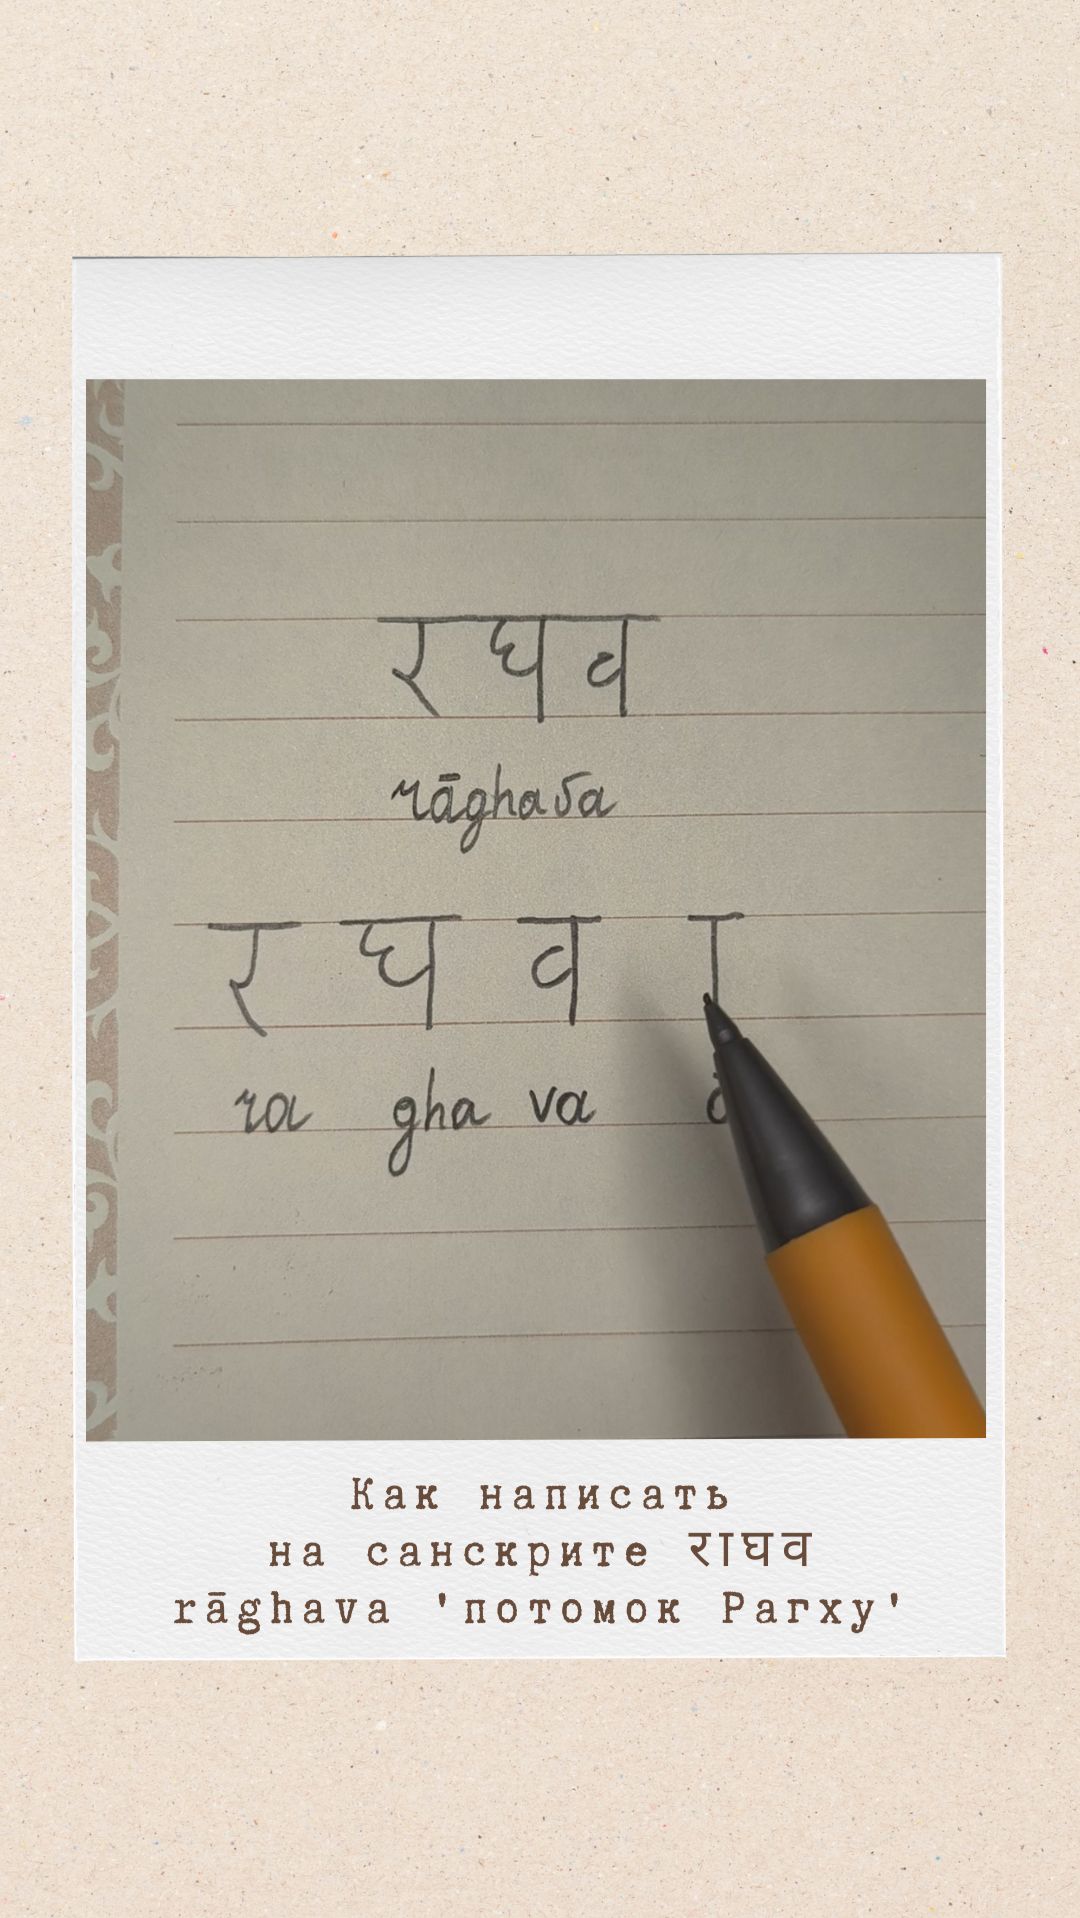 रघव
rāghava
र घ व ा
ra gha va
Как написать
на санскрите राघव
rāghava 'потомок Рагху'